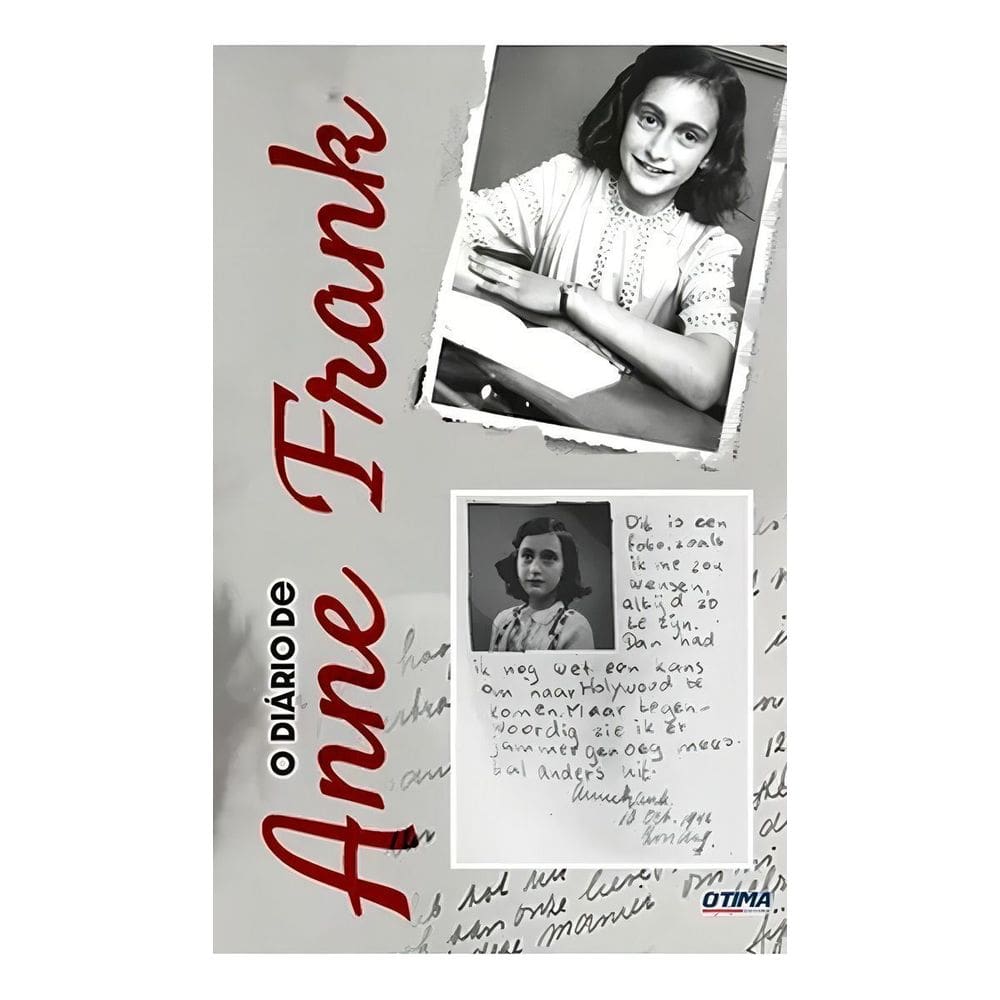 O DIÁRIO DE
Anne Frank
Dit is een
foto, zoals
ik me zou
wensen,
altijd zo
te zijn.
Dan had
ik nog wel een kans
om naar Holywood te
komen. Maar tegen-
woordig zie ik er
jammer genoeg mees-
tal anders uit.
Anne Frank.
10 Oct. 1942
aan onze lieve
deze manier
12
OTIMA